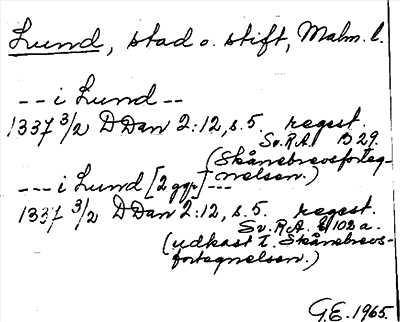 Lund, stad o. stift, Malm. l.
-- i Lund --
1337 3/2 DDan 2:12, s. 5. regest.
Sv. R.A. B 29.
(Skånebrevsforteg-
nelsen.)
--- i Lund [2 ggr] ---
1337 3/2 DDan 2:12, s. 5. regest.
Sv. R.A. 102 a.
(udkast t. Skånebrevs-
fortegnelsen.)
G.E. 1965.